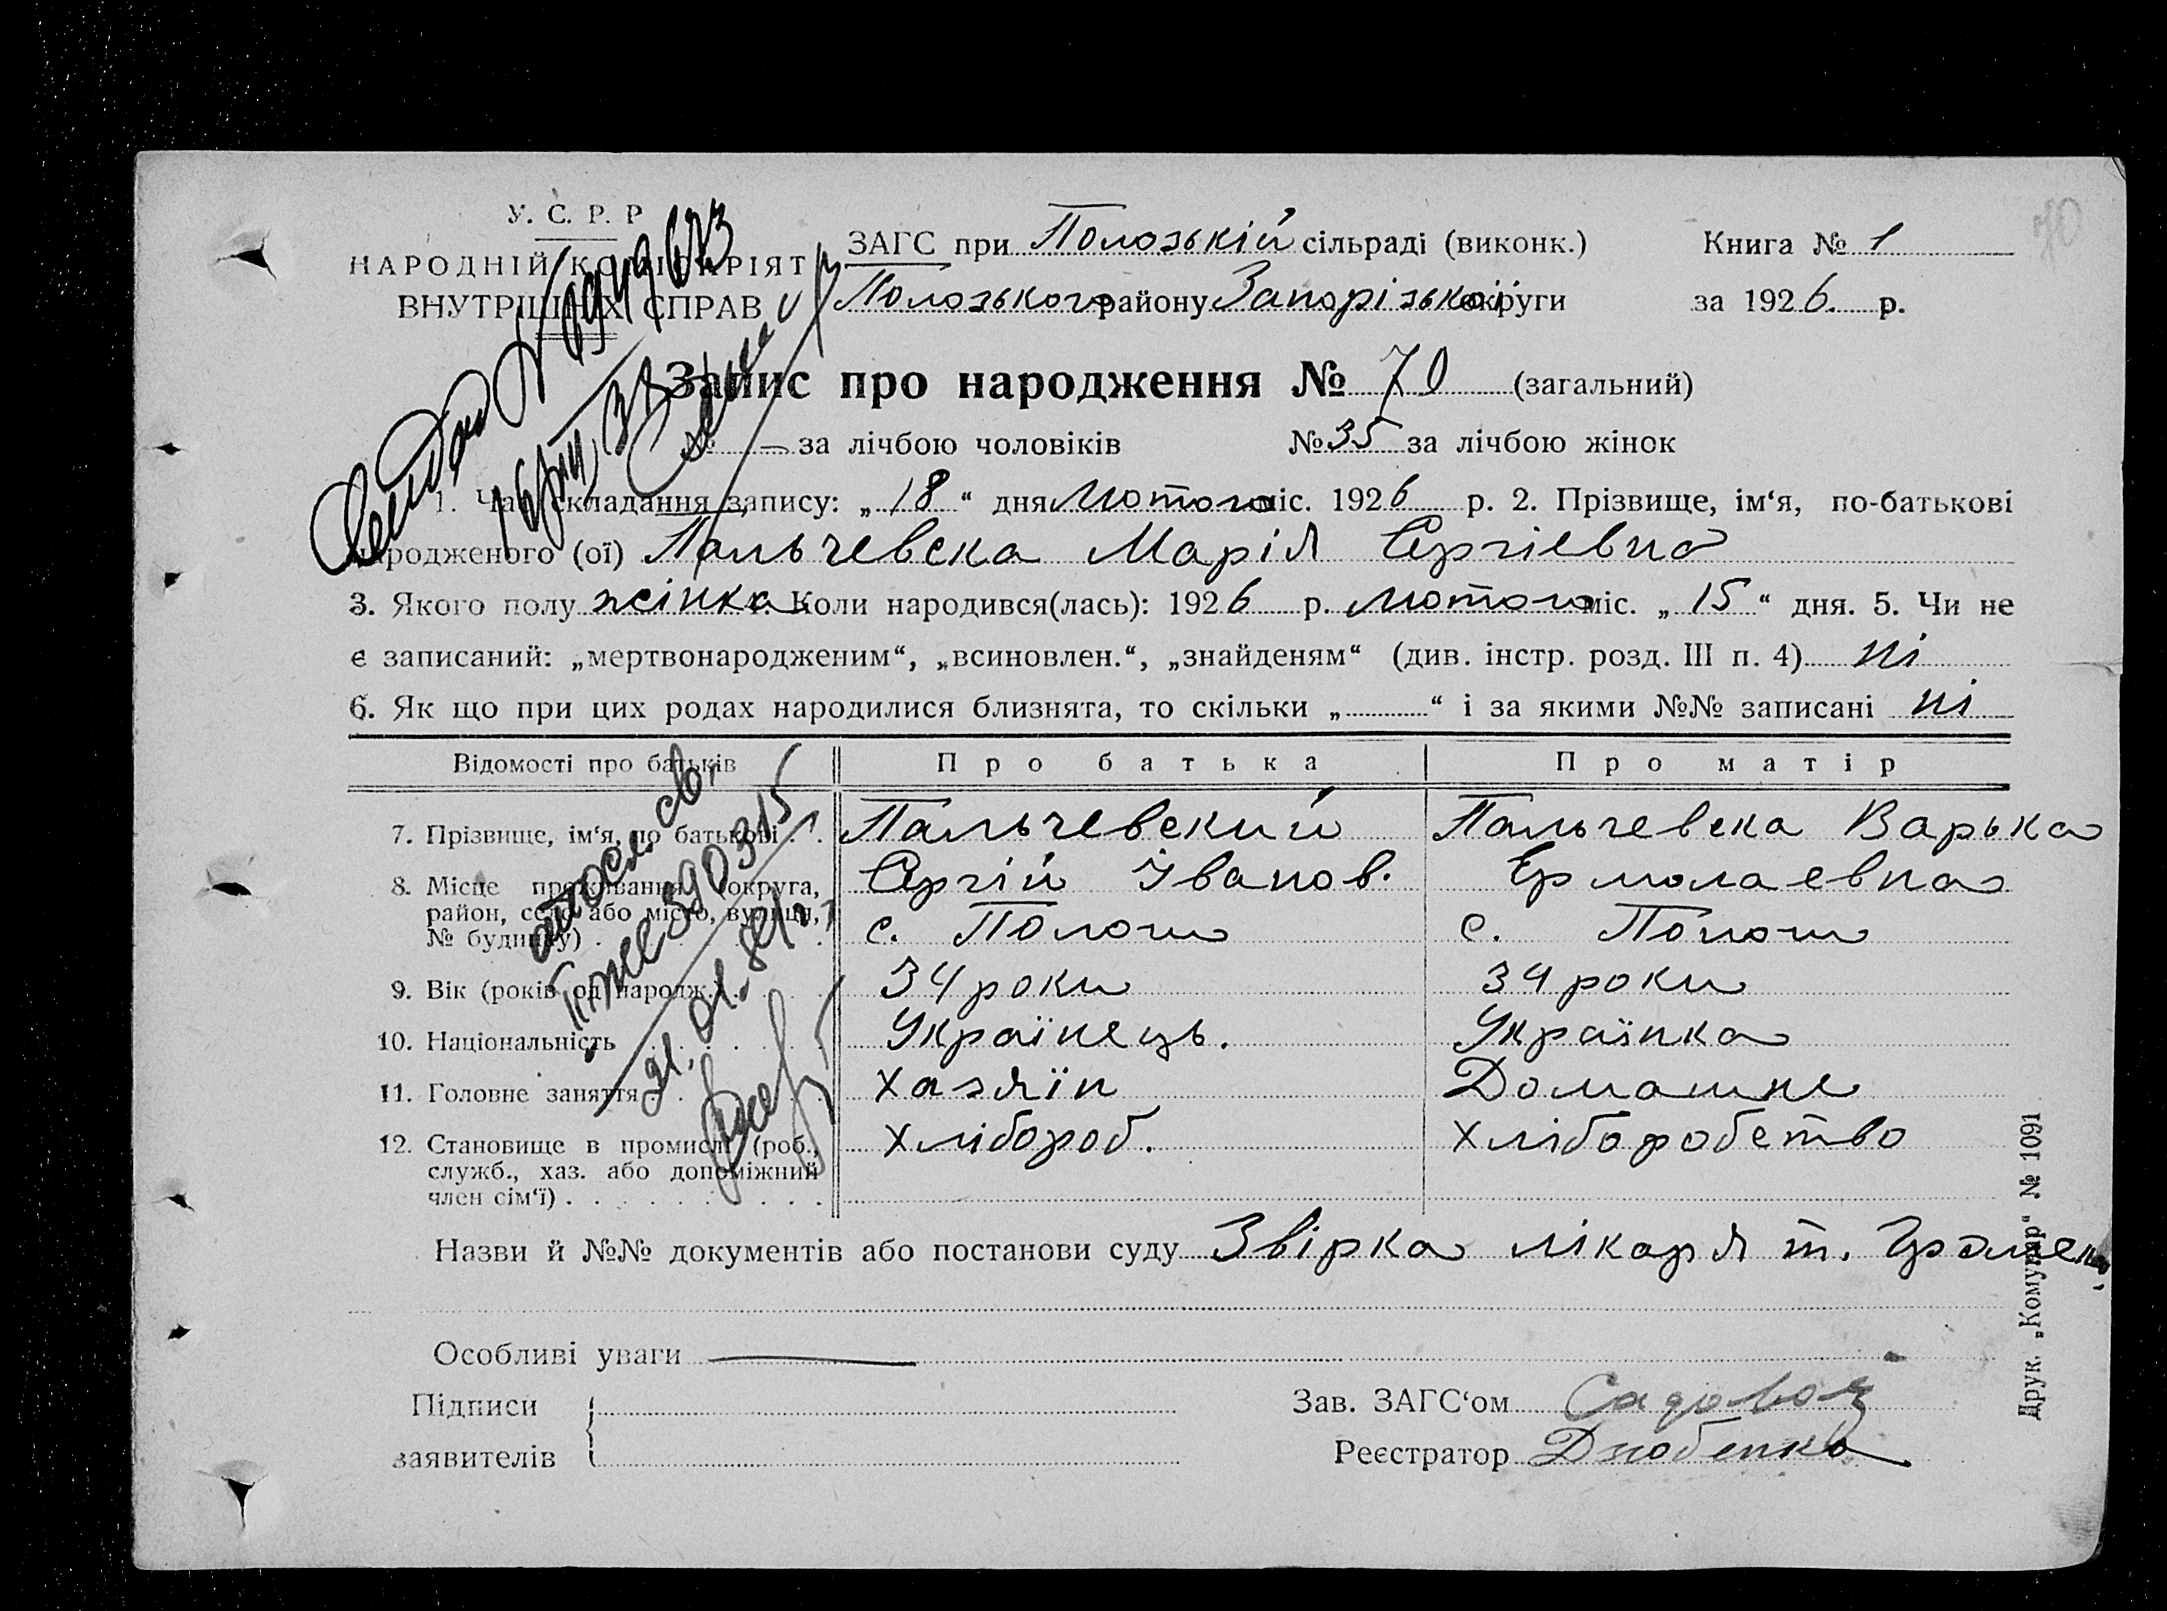 70
У. С. Р. Р
НАРОДНІЙ КОМІСАРІЯТ
ВНУТРІШНІХ СПРАВ
ЗАГС при Полозькій сільраді (виконк.) Книга № 1
Полозького району Запорізької округи за 1926 р.
Запис про народження № 70 (загальний)
№ — за лічбою чоловіків № 35 за лічбою жінок
1. Час складання запису: „18“ дня Лютого міс. 1926 р. 2. Прізвище, ім‘я, по-батькові
народженого (ої) Пальчевска Марія Сергіевна
3. Якого полу жінка 4. Коли народився(лась): 1926 р. Лютого міс. „15“ дня. 5. Чи не
є записаний: „мертвонародженим“, „всиновлен.“, „знайденям“ (див. інстр. розд. III п. 4) ні
6. Як що при цих родах народилися близнята, то скільки „ “ і за якими №№ записані ні
Відомості про батьків Про батька Про матір
7. Прізвище, ім‘я, по батькові . . Пальчевский Пальчевска Варька
8. Місце проживання (округа, Сергій Іванов. Ермолаевна
район, село або місто, вулиця,
№ будинку) . с. Пологи с. Пологи
9. Вік (років од народж.) . 34 роки 34 роки
10. Національність Українець. Українка
11. Головне заняття Хазяїн Домашне
12. Становище в промислі (роб., Хлібороб. Хліборобство
служб., хаз. або допоміжний
член сім‘ї) . . . . . . . . .
Назви й №№ документів або постанови суду Звірка лікаря т.
Особливі уваги —
Підписи
заявителів
Зав. ЗАГС‘ом Садовой
Реєстратор Дзюбенко
Друк. „Комунар“ № 1091
590315